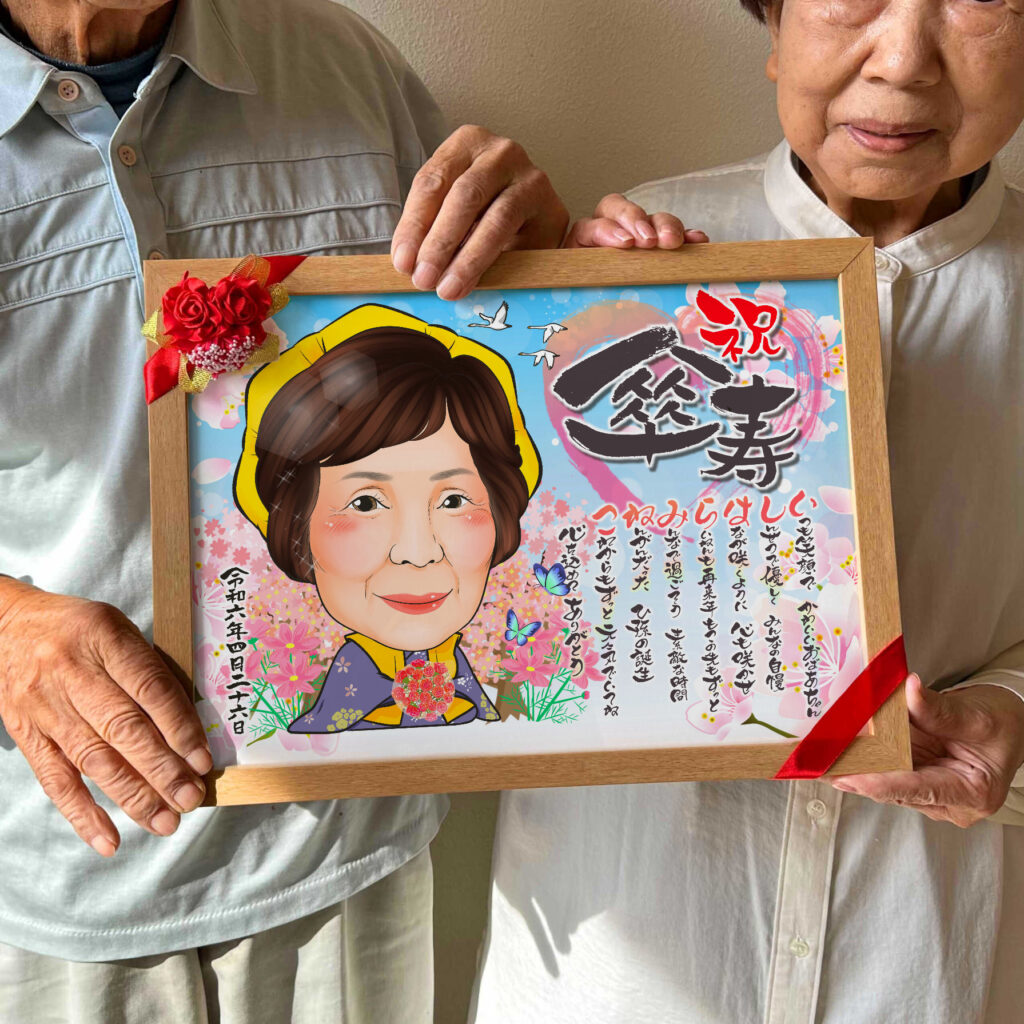 祝
傘寿
いつも笑顔で かわいいおばあちゃん
しんせつで優しく みんなの自慢
はなが咲くように 心も咲かせ
らいねんも再来年も その先もずっと
みんなで過ごそう 素敵な時間
ねんがんだった ひ孫の誕生
これからもずっと元気でいてね
心を込めて ありがとう
令和六年四月二十六日